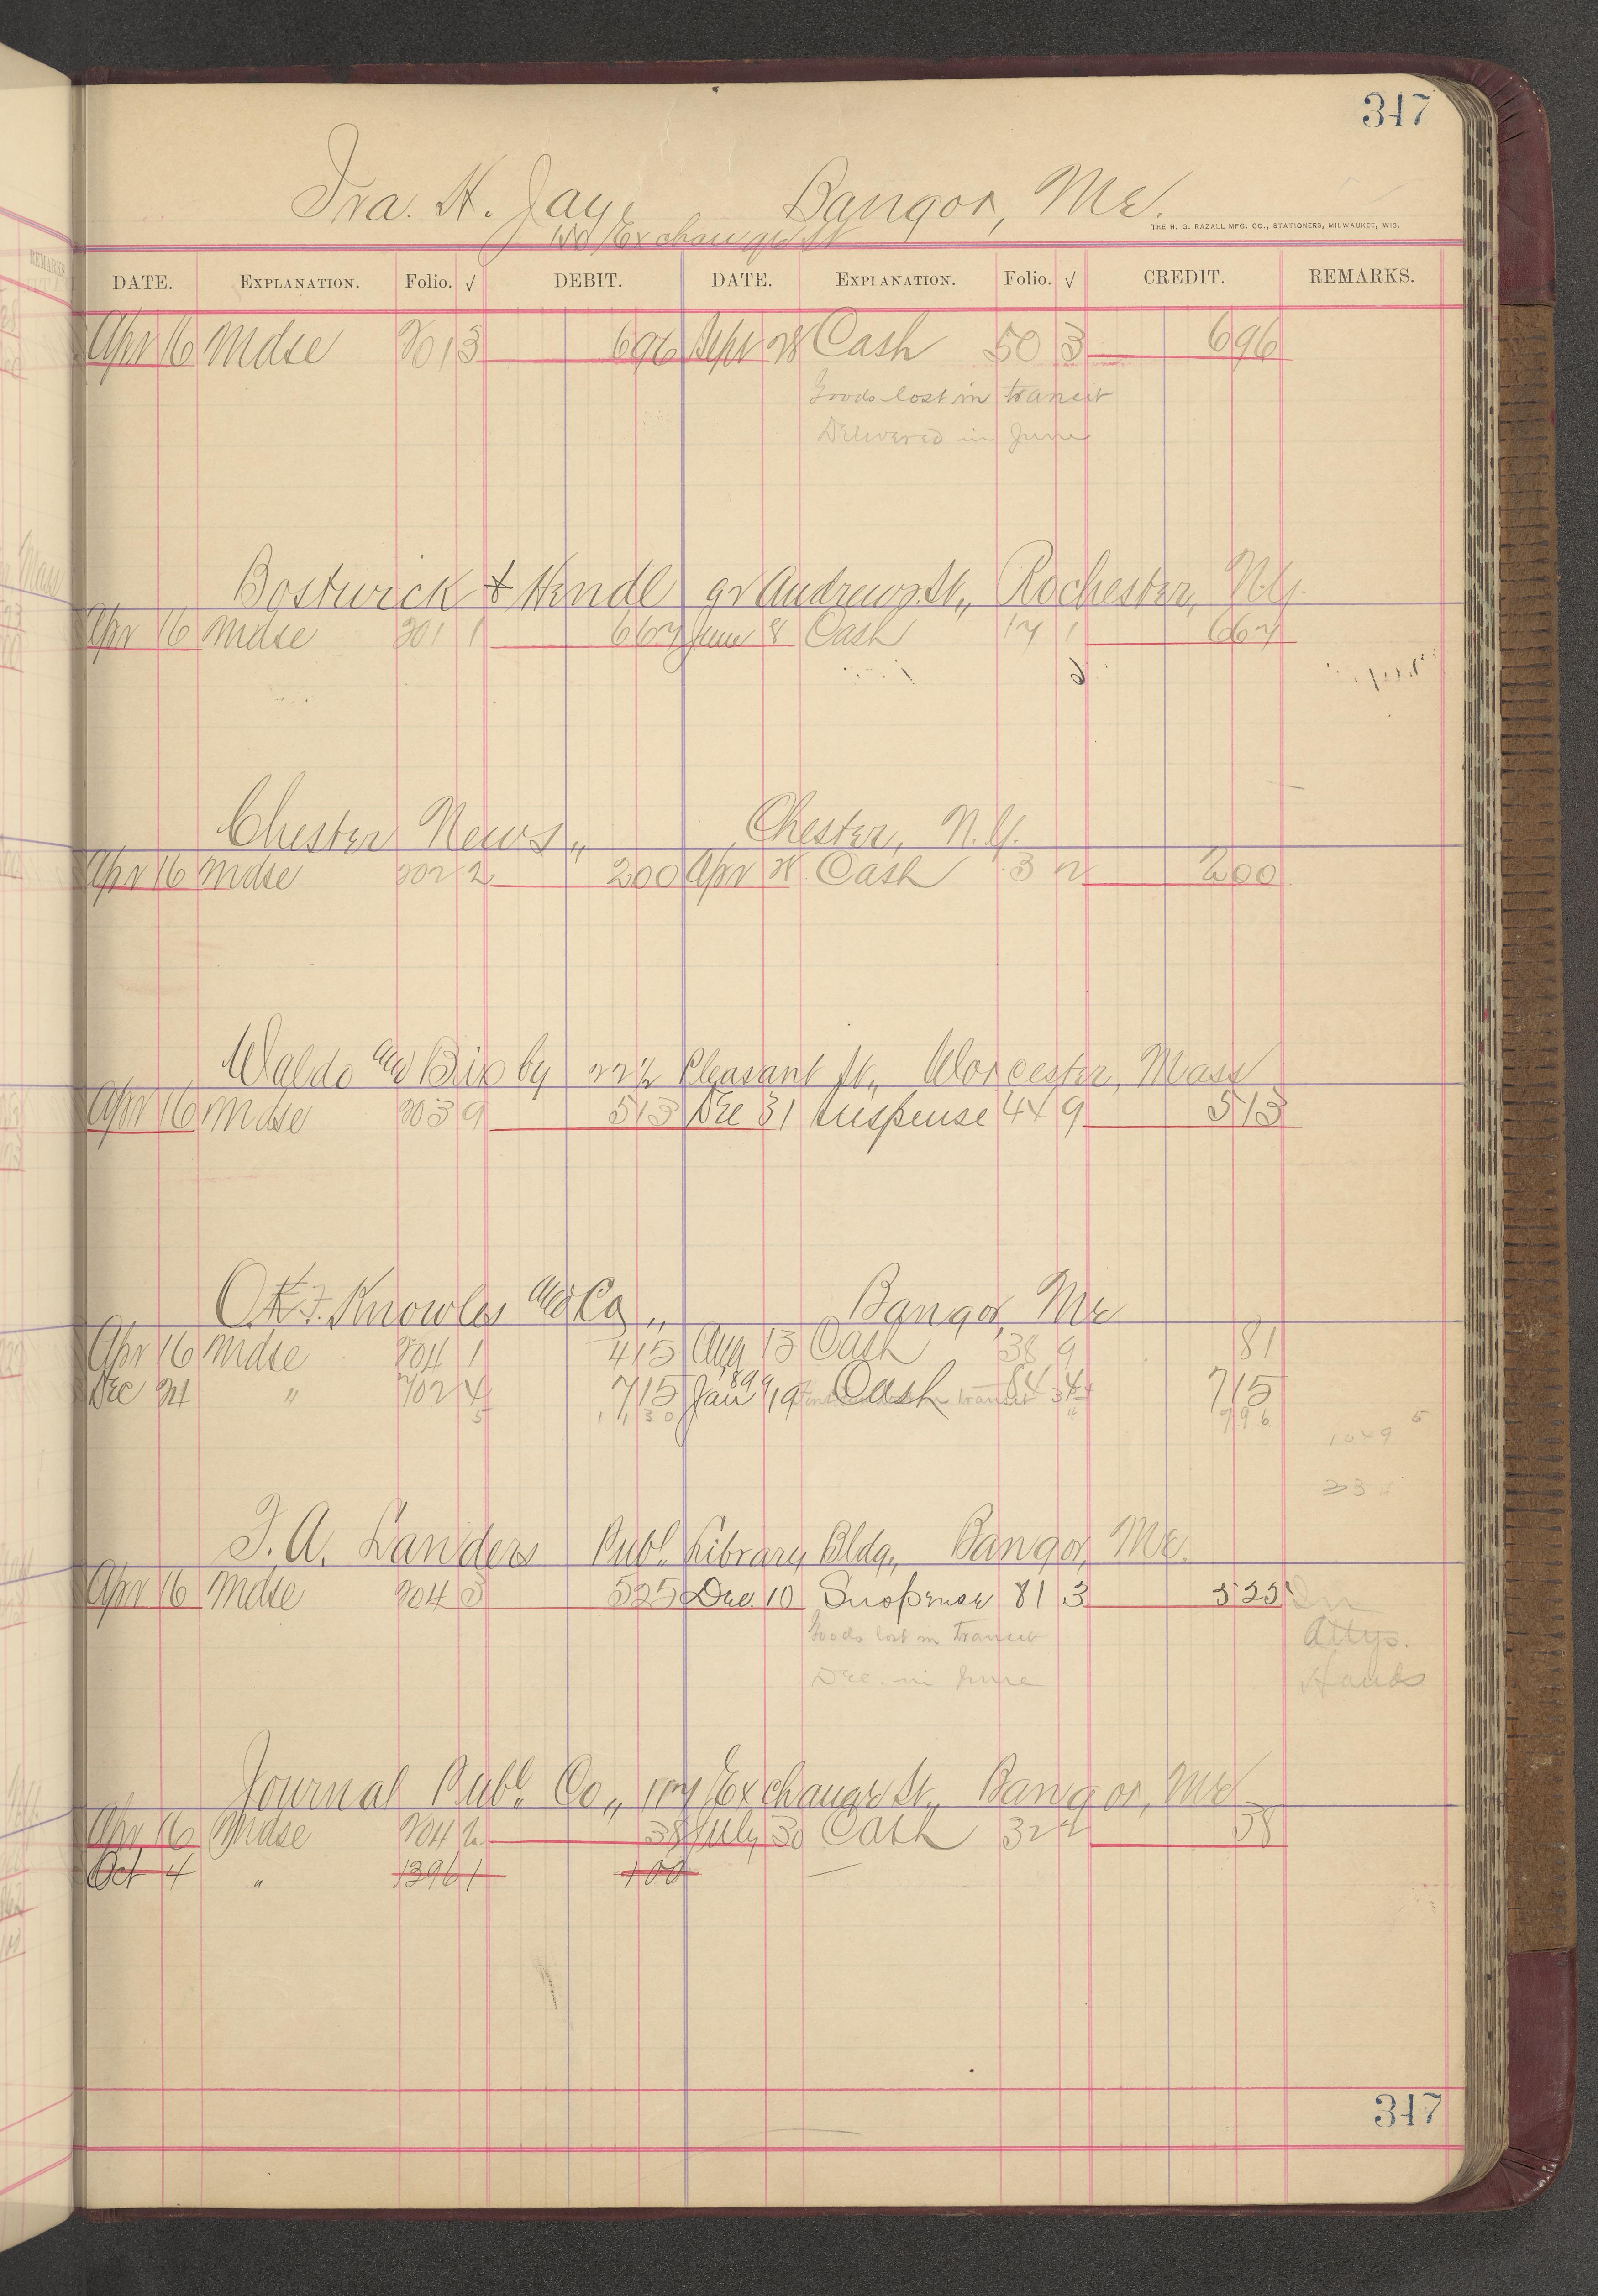 347
Ira. H. Jay, Bangor, Me.
Exchange St
THE H. G. RAZALL MFG. CO., STATIONERS, MILWAUKEE, WIS.
DATE. EXPLANATION. Folio. √ DEBIT. DATE. EXPLANATION. Folio. √ CREDIT. REMARKS.
Apr 16 Mdse 201 3 696 Sept 28 Cash 50 3 696
Goods lost in transit
Delivered in June
Bostwick & Hendl 92 Andrews St., Rochester, N.Y.
Apr 16 Mdse 201 1 667 June 8 Cash 17 1 667
Chester News,, Chester, N.Y.
Apr 16 Mdse 202 2 200 Apr 28 Cash 3 2 200
Waldo and Bixby 22½ Pleasant St., Worcester, Mass
Apr 16 Mdse 203 9 513 Dec 31 Suspense 44 9 513
O.F. Knowles and Co,, Bangor, Me
Apr 16 Mdse 204 1 415 Aug 13 Cash 38 9 81
Dec 24 " 702 4 715 Jan 19 Cash 64 4 715
1899 transit
5 1130 4 796
1049 5
33
F. A. Landers Publ. Library Bldg., Bangor, Me.
Apr 16 Mdse 204 3 525 Dec. 10 Suspense 81 3 525 In
Goods lost in Transit Attys.
Dec. in June Hands
Journal Publ. Co,, 177 Exchange St., Bangor, Me
Apr 16 Mdse 204 2 38 July 30 Cash 32 2 38
Oct 4 " 1396 1 100
347